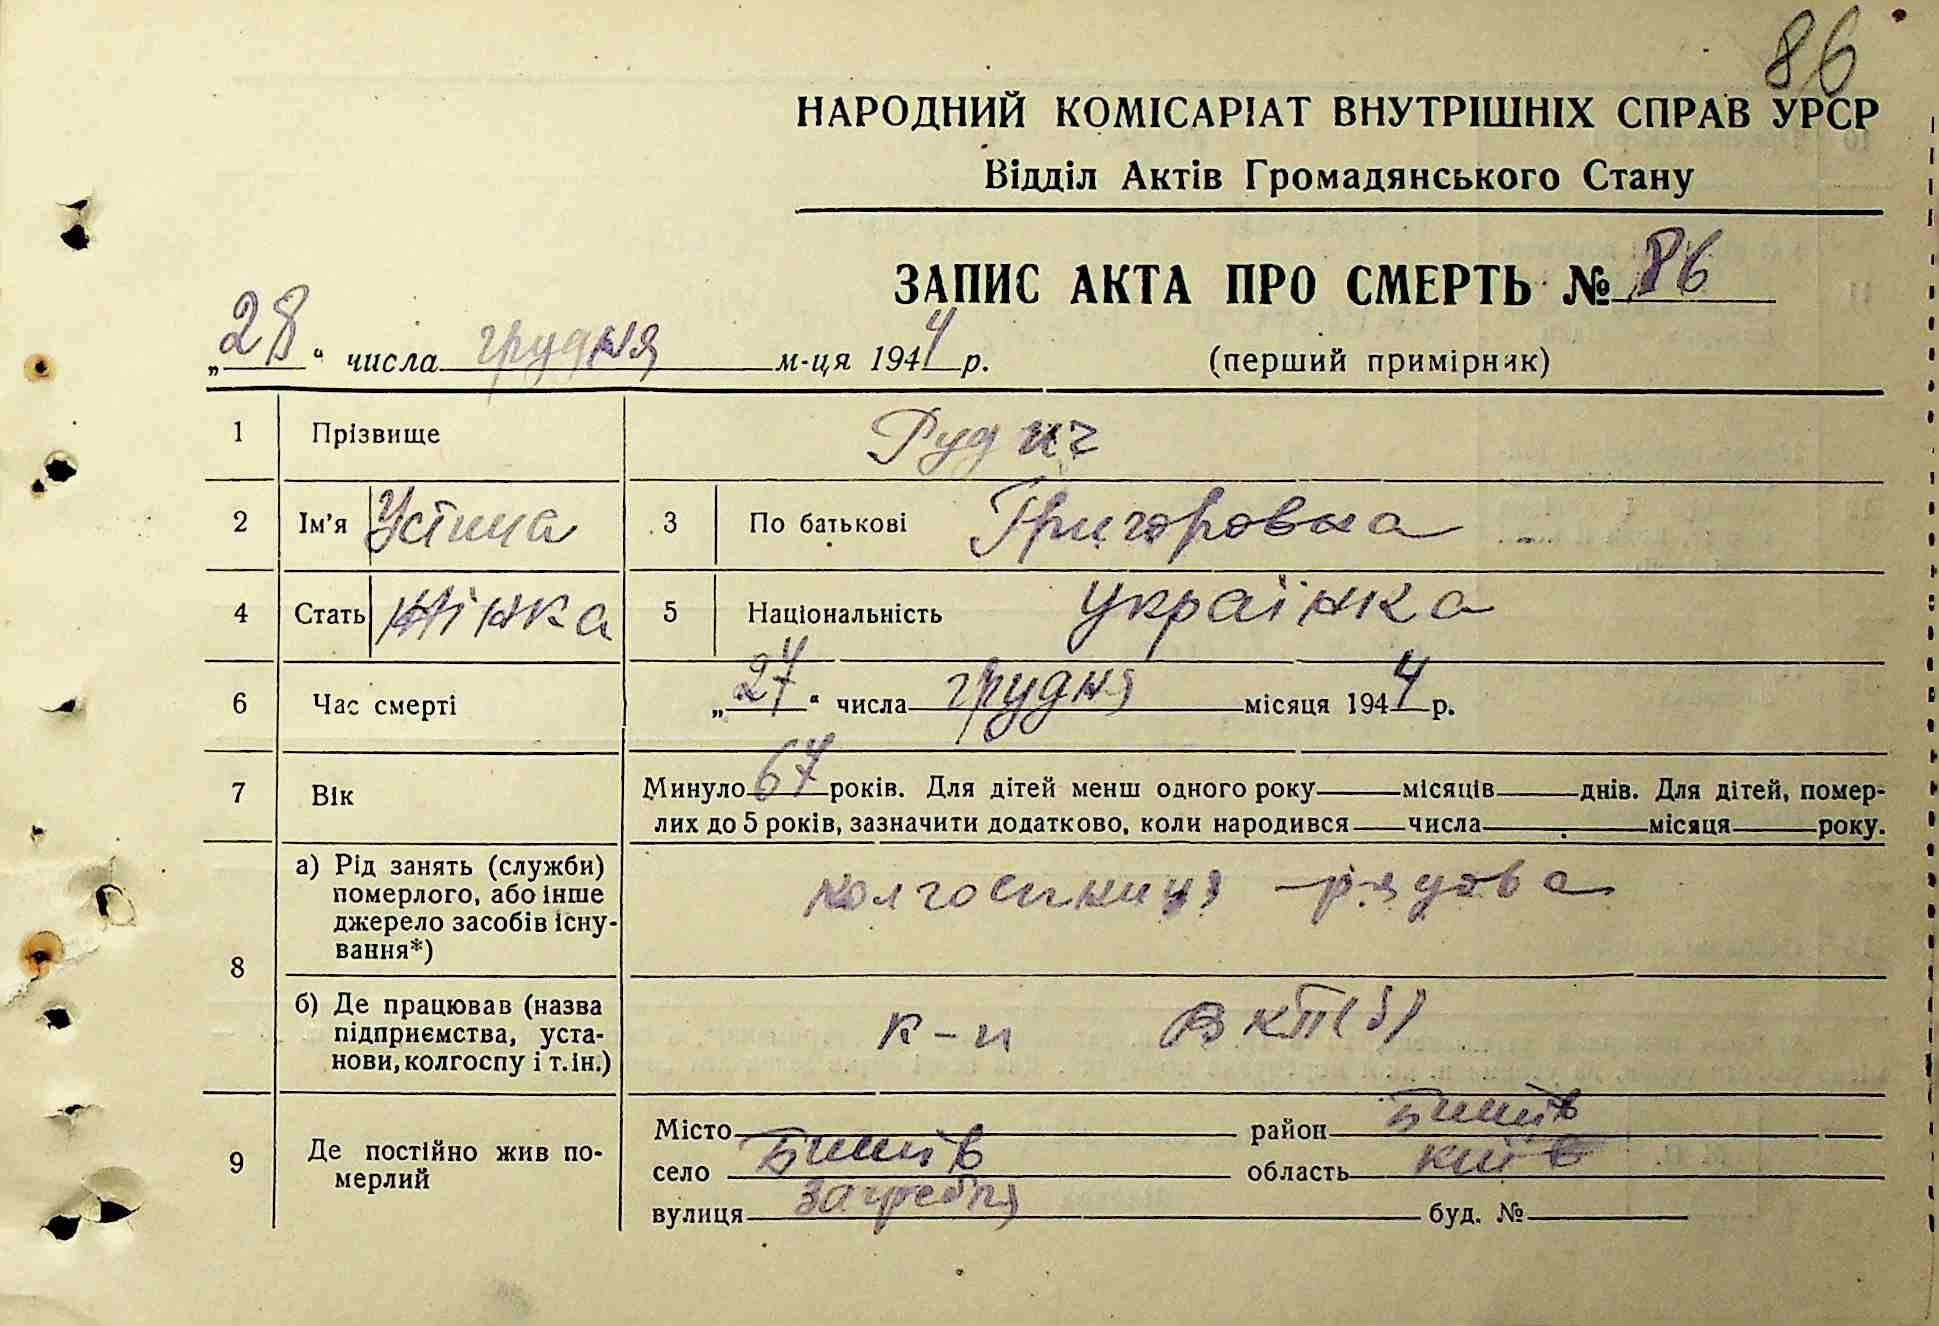 86
НАРОДНИЙ КОМІСАРІАТ ВНУТРІШНІХ СПРАВ УРСР
Відділ Актів Громадянського Стану
ЗАПИС АКТА ПРО СМЕРТЬ № 86
„28“ числа грудня м-ця 1944 р. (перший примірник)
1 Прізвище Рудич
2 Ім'я Устина 3 По батькові Григоровна
4 Стать жінка 5 Національність Українка
6 Час смерті „27“ числа грудня місяця 1944 р.
7 Вік Минуло 67 років. Для дітей менш одного року місяців днів. Для дітей, помер-
лих до 5 років, зазначити додатково, коли народився числа місяця року.
8 а) Рід занять (служби) померлого, або інше джерело засобів існу-вання*) колгоспниця рядова
б) Де працював (назва підприємства, уста-нови, колгоспу і т. ін.) к-п ВКП(б)
9 Де постійно жив по-мерлий Місто район Бишів
село Бишів область Київ
вулиця Загребля буд. №